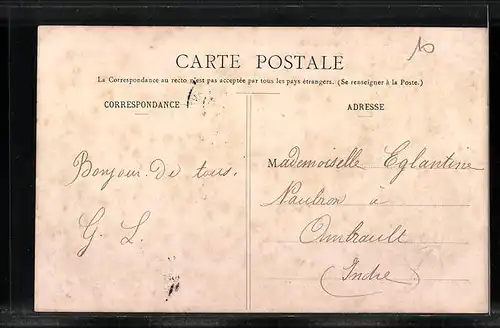 10
CARTE POSTALE
La Correspondance au recto n'est pas acceptée par tous les pays étrangers. (Se renseigner à la Poste.)
CORRESPONDANCE
ADRESSE
Bonjour De tous.
G. L.
Mademoiselle Eglantine
Naubron à
Ambrault
(Indre)